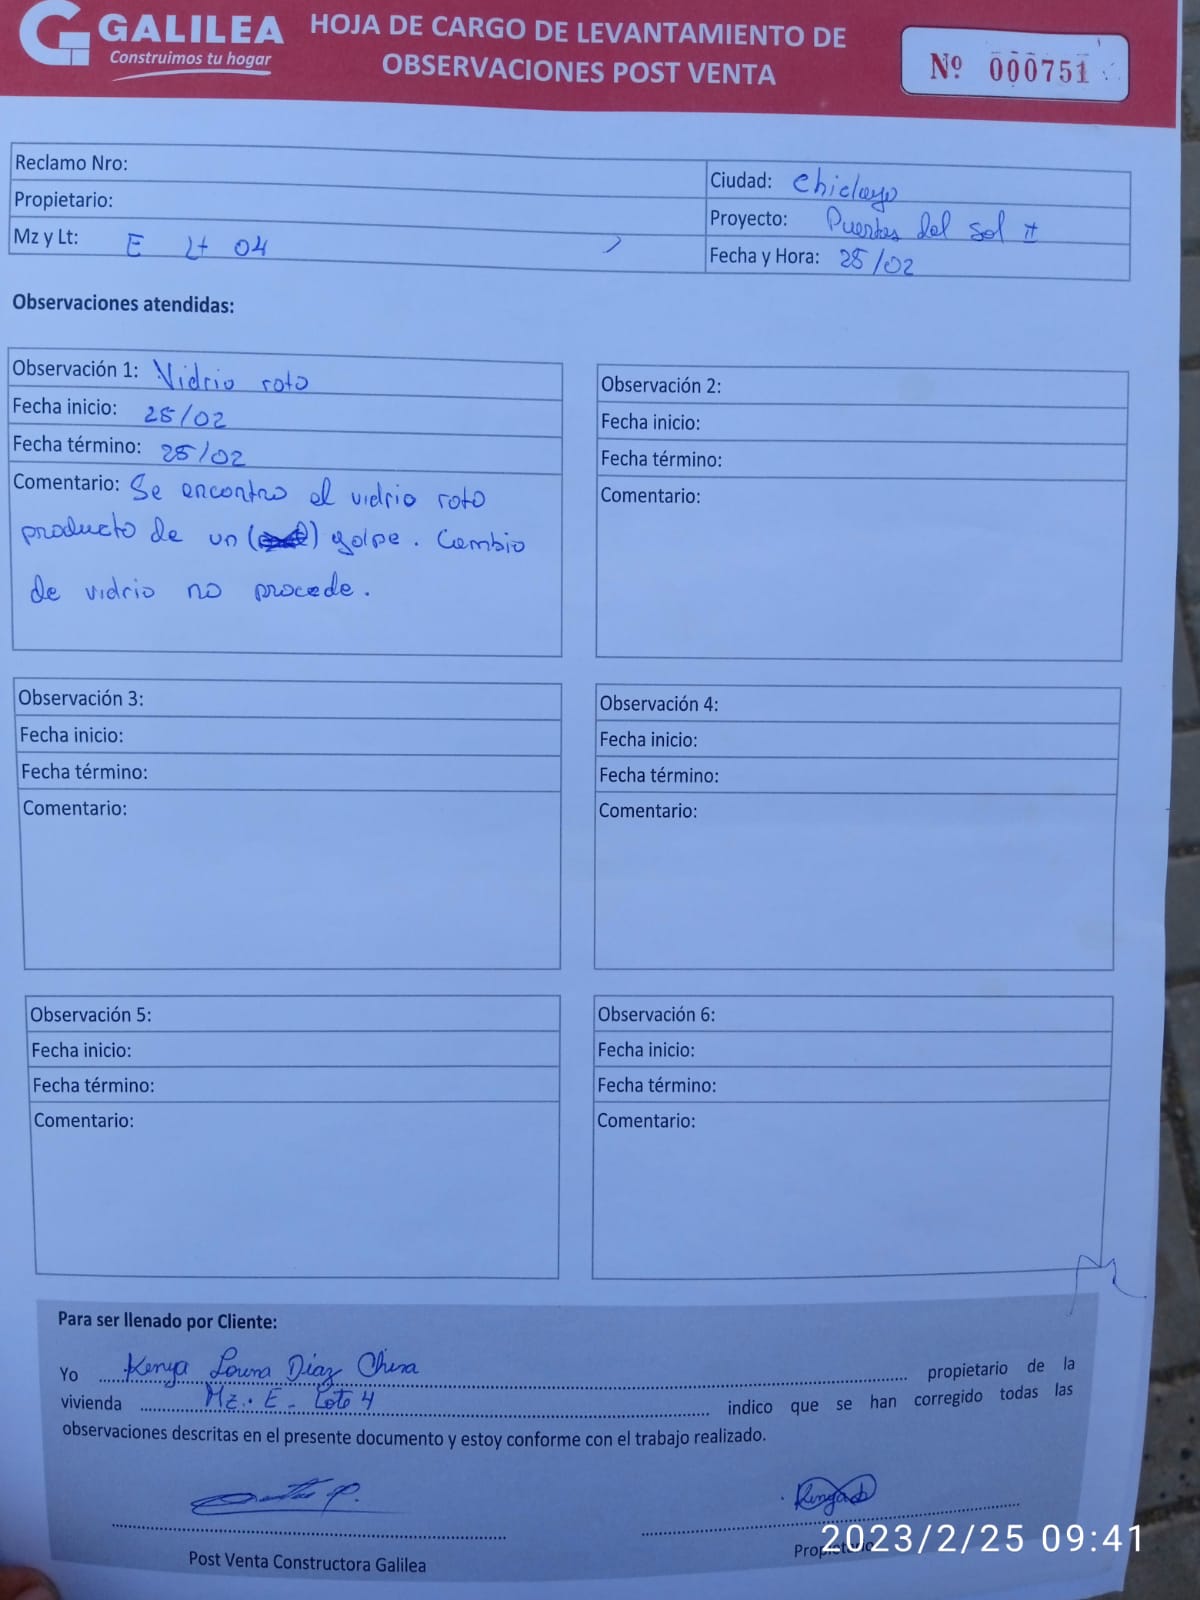 GALILEA
Construimos tu hogar
HOJA DE CARGO DE LEVANTAMIENTO DE
OBSERVACIONES POST VENTA
Nº 000751
Reclamo Nro:
Propietario:
Mz y Lt: E Lt 04
Ciudad: Chiclayo
Proyecto: Puertas del Sol II
Fecha y Hora: 25/02
Observaciones atendidas:
Observación 1: Vidrio roto
Fecha inicio: 25/02
Fecha término: 25/02
Comentario: Se encontro el vidrio roto
producto de un ( ) golpe. Cambio
de vidrio no procede.
Observación 2:
Fecha inicio:
Fecha término:
Comentario:
Observación 3:
Fecha inicio:
Fecha término:
Comentario:
Observación 4:
Fecha inicio:
Fecha término:
Comentario:
Observación 5:
Fecha inicio:
Fecha término:
Comentario:
Observación 6:
Fecha inicio:
Fecha término:
Comentario:
Para ser llenado por Cliente:
Yo Kenya Díaz propietario de la
vivienda Mz. E - Lote 4 indico que se han corregido todas las
observaciones descritas en el presente documento y estoy conforme con el trabajo realizado.
Post Venta Constructora Galilea
Propietario
2023/2/25 09:41